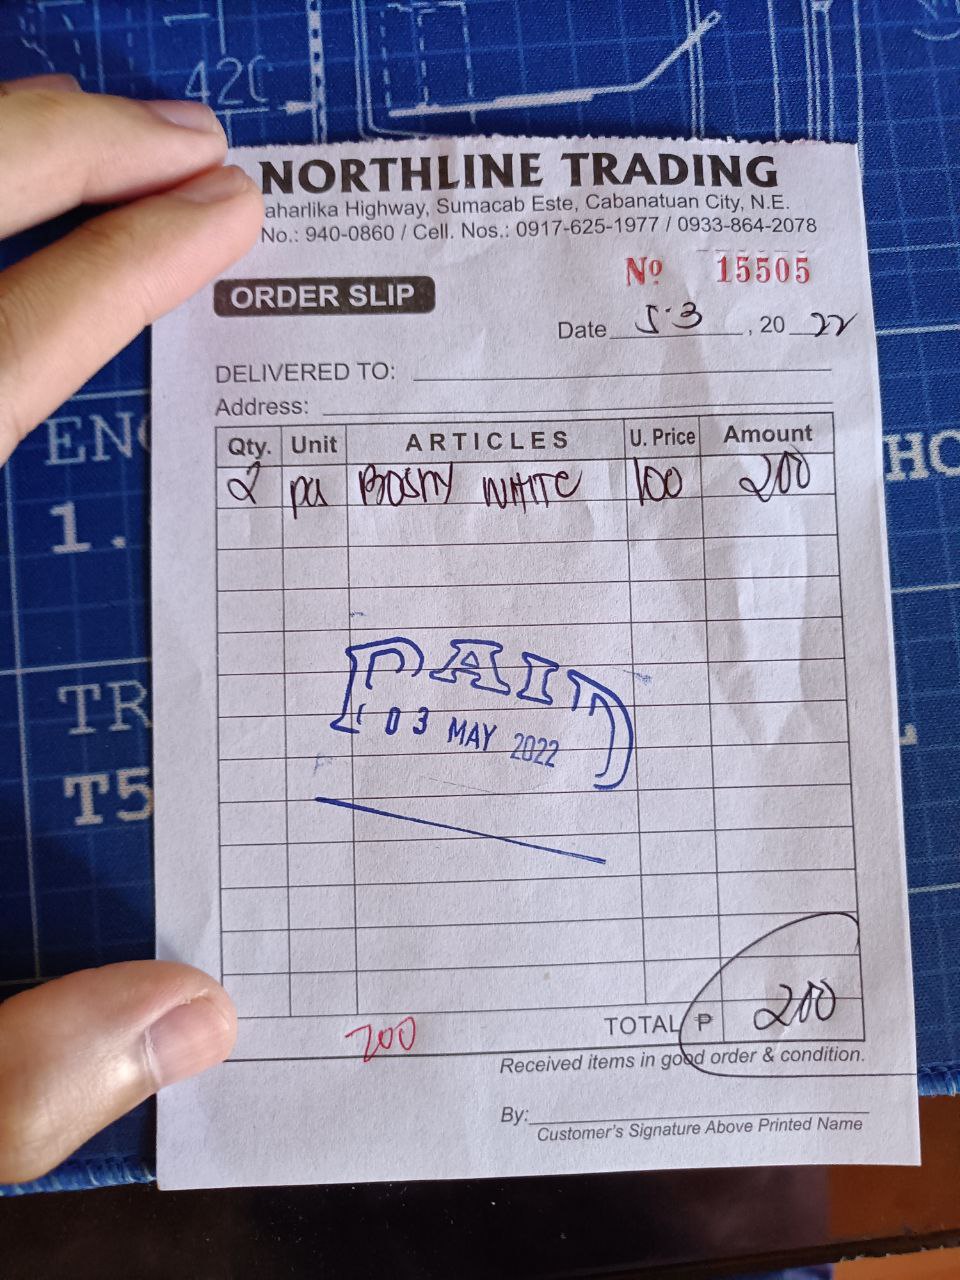 42C
NORTHLINE TRADING
aharlika Highway, Sumacab Este, Cabanatuan City, N.E.
No.: 940-0860 / Cell. Nos.: 0917-625-1977 / 0933-864-2078
Nº 15505
ORDER SLIP
Date 5.3, 2022
DELIVERED TO:
Address:
Qty. Unit ARTICLES U. Price Amount
2 pcs BOSNY WHITE 100 200
PAID
03 MAY 2022
200
TOTAL ₱ 200
Received items in good order & condition.
By:
Customer's Signature Above Printed Name
EN
1.
TR
T5
HO